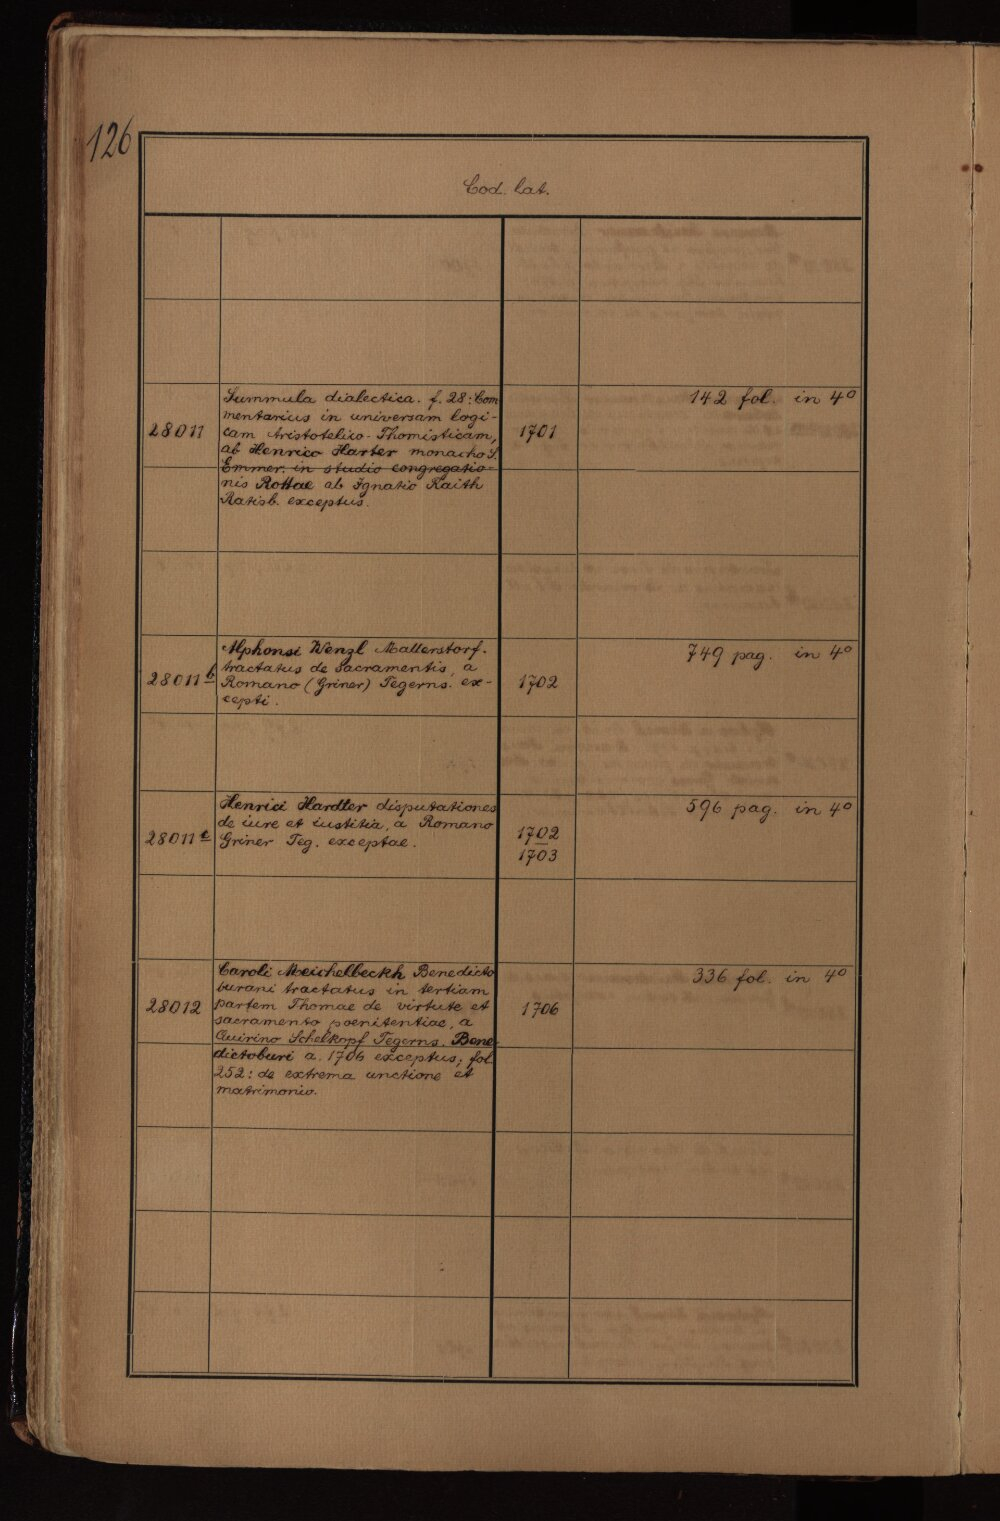 126
Cod. lat.
Summula dialectica. f. 28: Com
mentarius in universam logi-
cam Aristotelico-Thomisticam,
ab Henrico Harter monacho S.
Emmer. in studio congregatio-
nis Rottae ab Ignatio Raith
Ratisb. exceptus.
28011
1701
142 fol. in 4°
Alphonsi Wenzl Mallerstorf.
tractatus de sacramentis, a
Romano (Griner) Tegerns. ex-
cepti.
28011 b
1702
749 pag. in 4°
Henrici Hardter disputationes
de iure et iustitia, a Romano
Griner Teg. exceptae.
28011 c
1702
1703
596 pag. in 4°
Caroli Meichelbeckh Benedicto
burani tractatus in tertiam
partem Thomae de virtute et
sacramento poenitentiae, a
Quirino Schelkopf Tegerns. Bene
dictoburi a. 1706 exceptus; fol
252: de extrema unctione et
matrimonio.
28012
1706
336 fol. in 4°